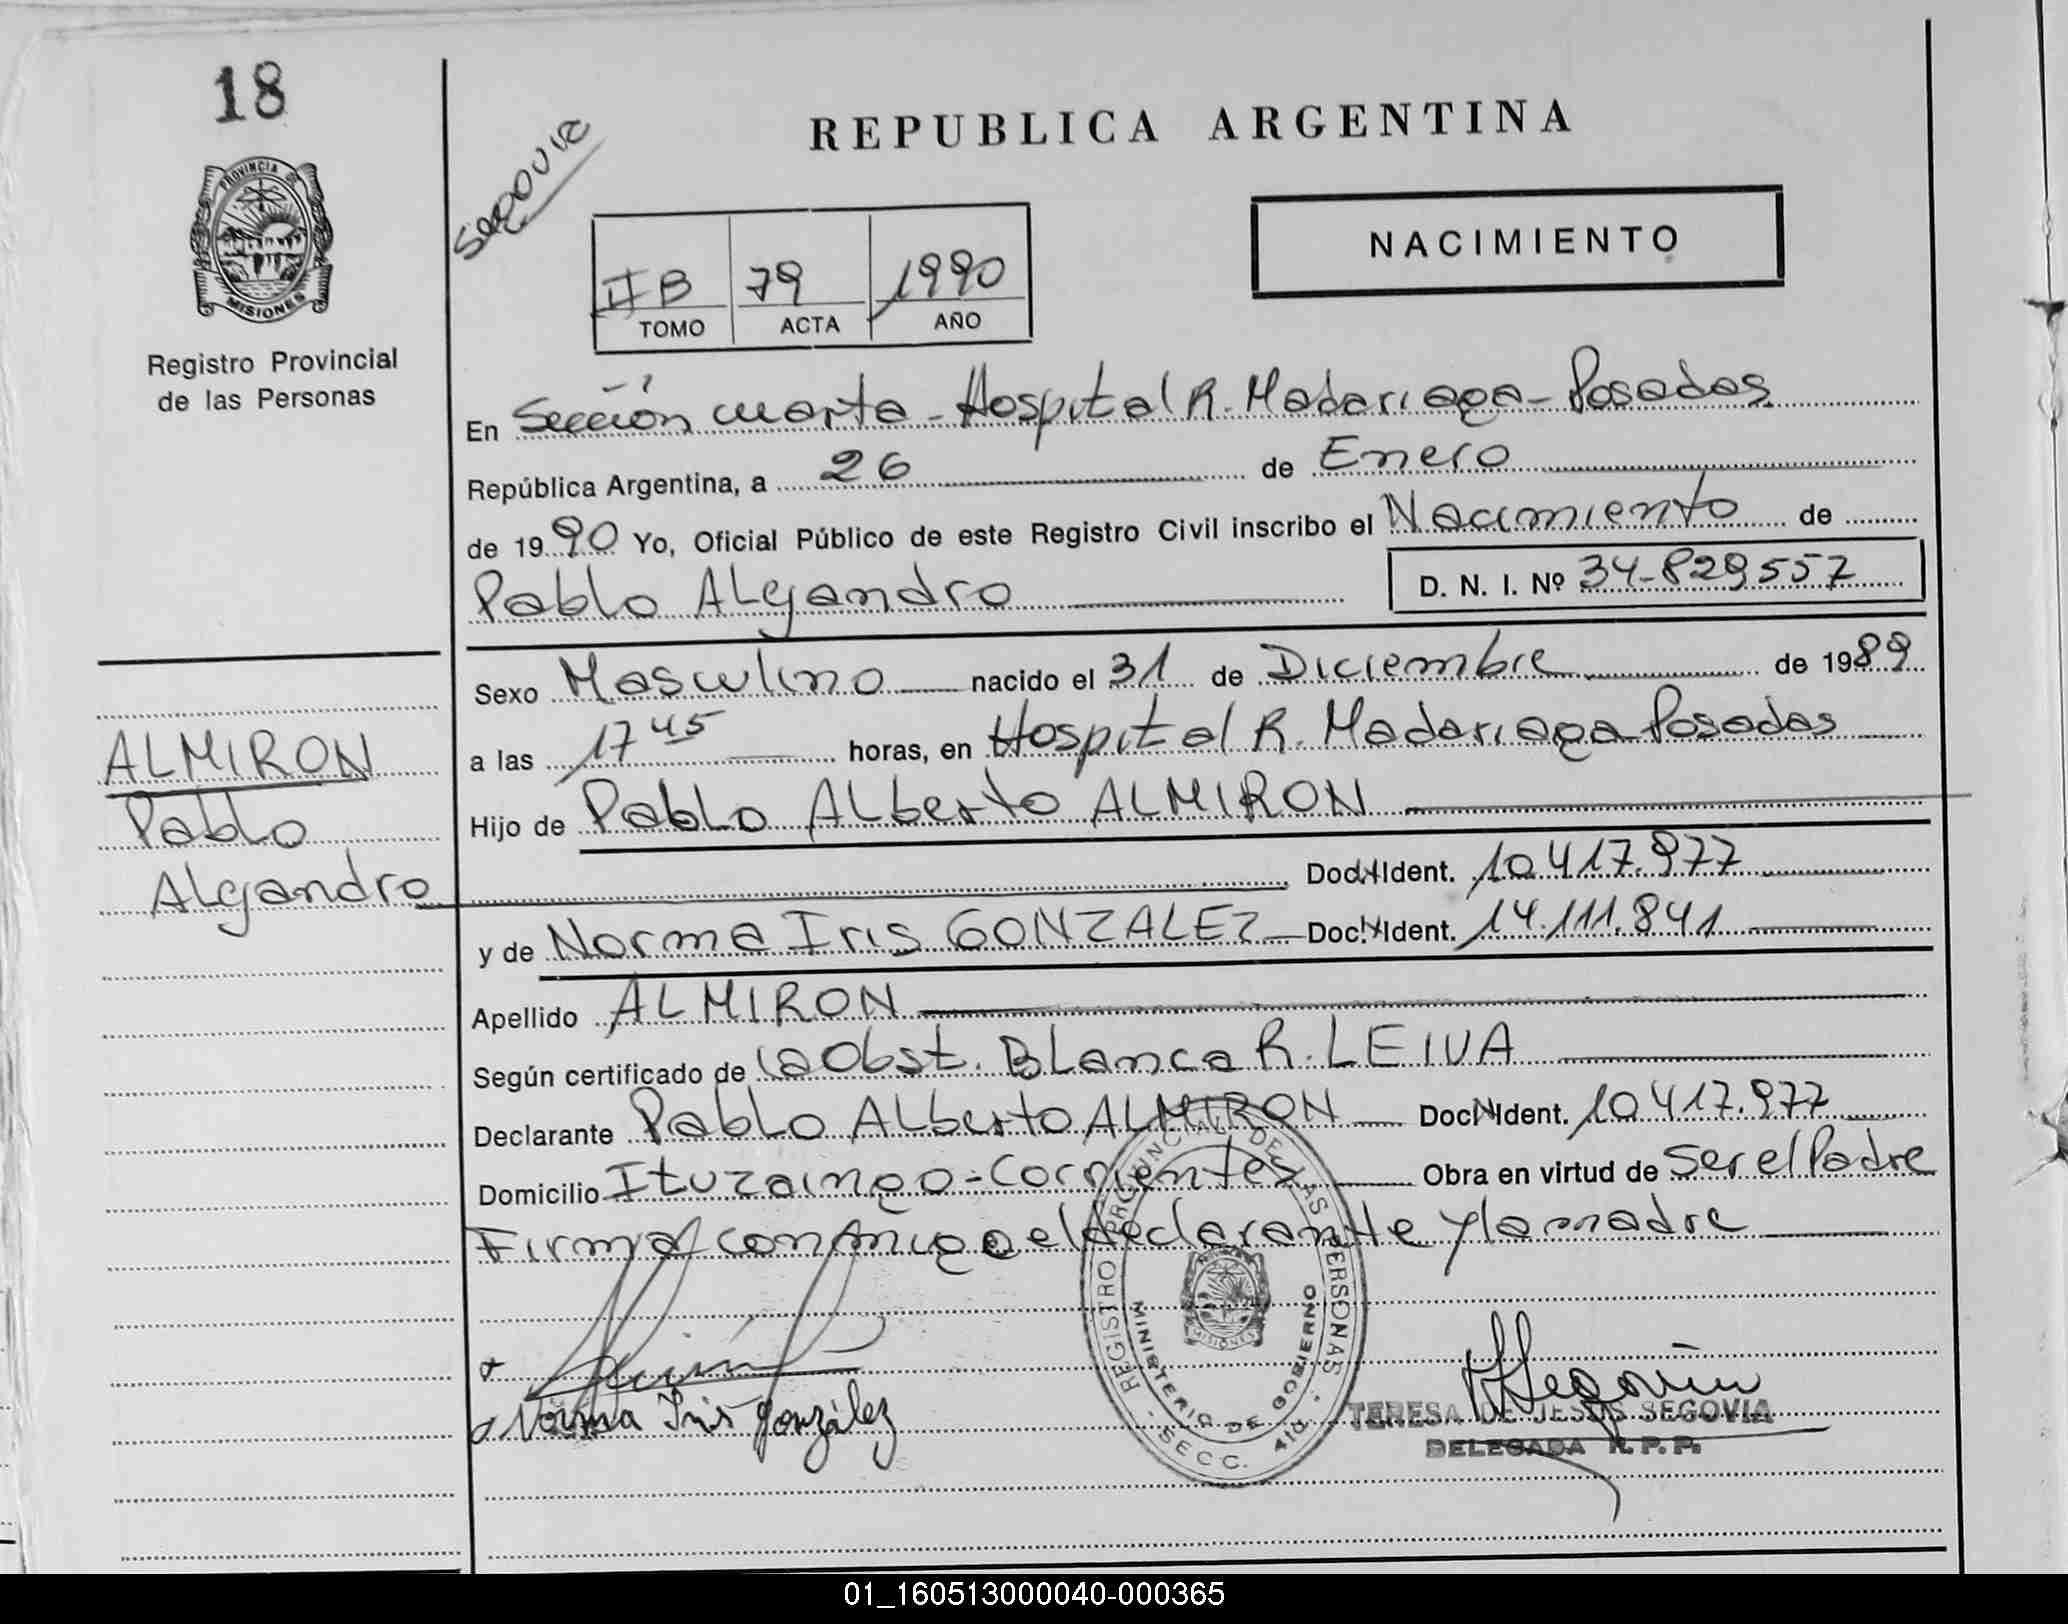 18
PROVINCIA DE
MISIONES
Registro Provincial
de las Personas
ALMIRON
Pablo
Alejandro
Segovia
REPUBLICA ARGENTINA
NACIMIENTO
II B 79 1990
TOMO ACTA AÑO
En Sección cuarta - Hospital R. Madariaga - Posadas
República Argentina, a 26 de Enero
de 1990 Yo, Oficial Público de este Registro Civil inscribo el Nacimiento de
Pablo Alejandro D. N. I. Nº 34-829557
Sexo Masculino nacido el 31 de Diciembre de 1989
a las 17 45 horas, en Hospital R. Madariaga Posadas
Hijo de Pablo Alberto ALMIRON
Doc. Ident. 10.417.977
y de Norma Iris GONZALEZ Doc. Ident. 14.111.841
Apellido ALMIRON
Según certificado de la Obst. Blanca R. LEIVA
Declarante Pablo Alberto ALMIRON Doc. Ident. 10.417.977
Domicilio Ituzaingo - Corrientes Obra en virtud de Ser el Padre
Firma conmigo el declarante y la madre
REGISTRO PROVINCIAL DE LAS PERSONAS
MINISTERIO DE GOBIERNO
MISIONES
SECC. 4ta
Norma Iris González
Segovia
TERESA DE JESUS SEGOVIA
DELEGADA R. P. P.
01_160513000040-000365